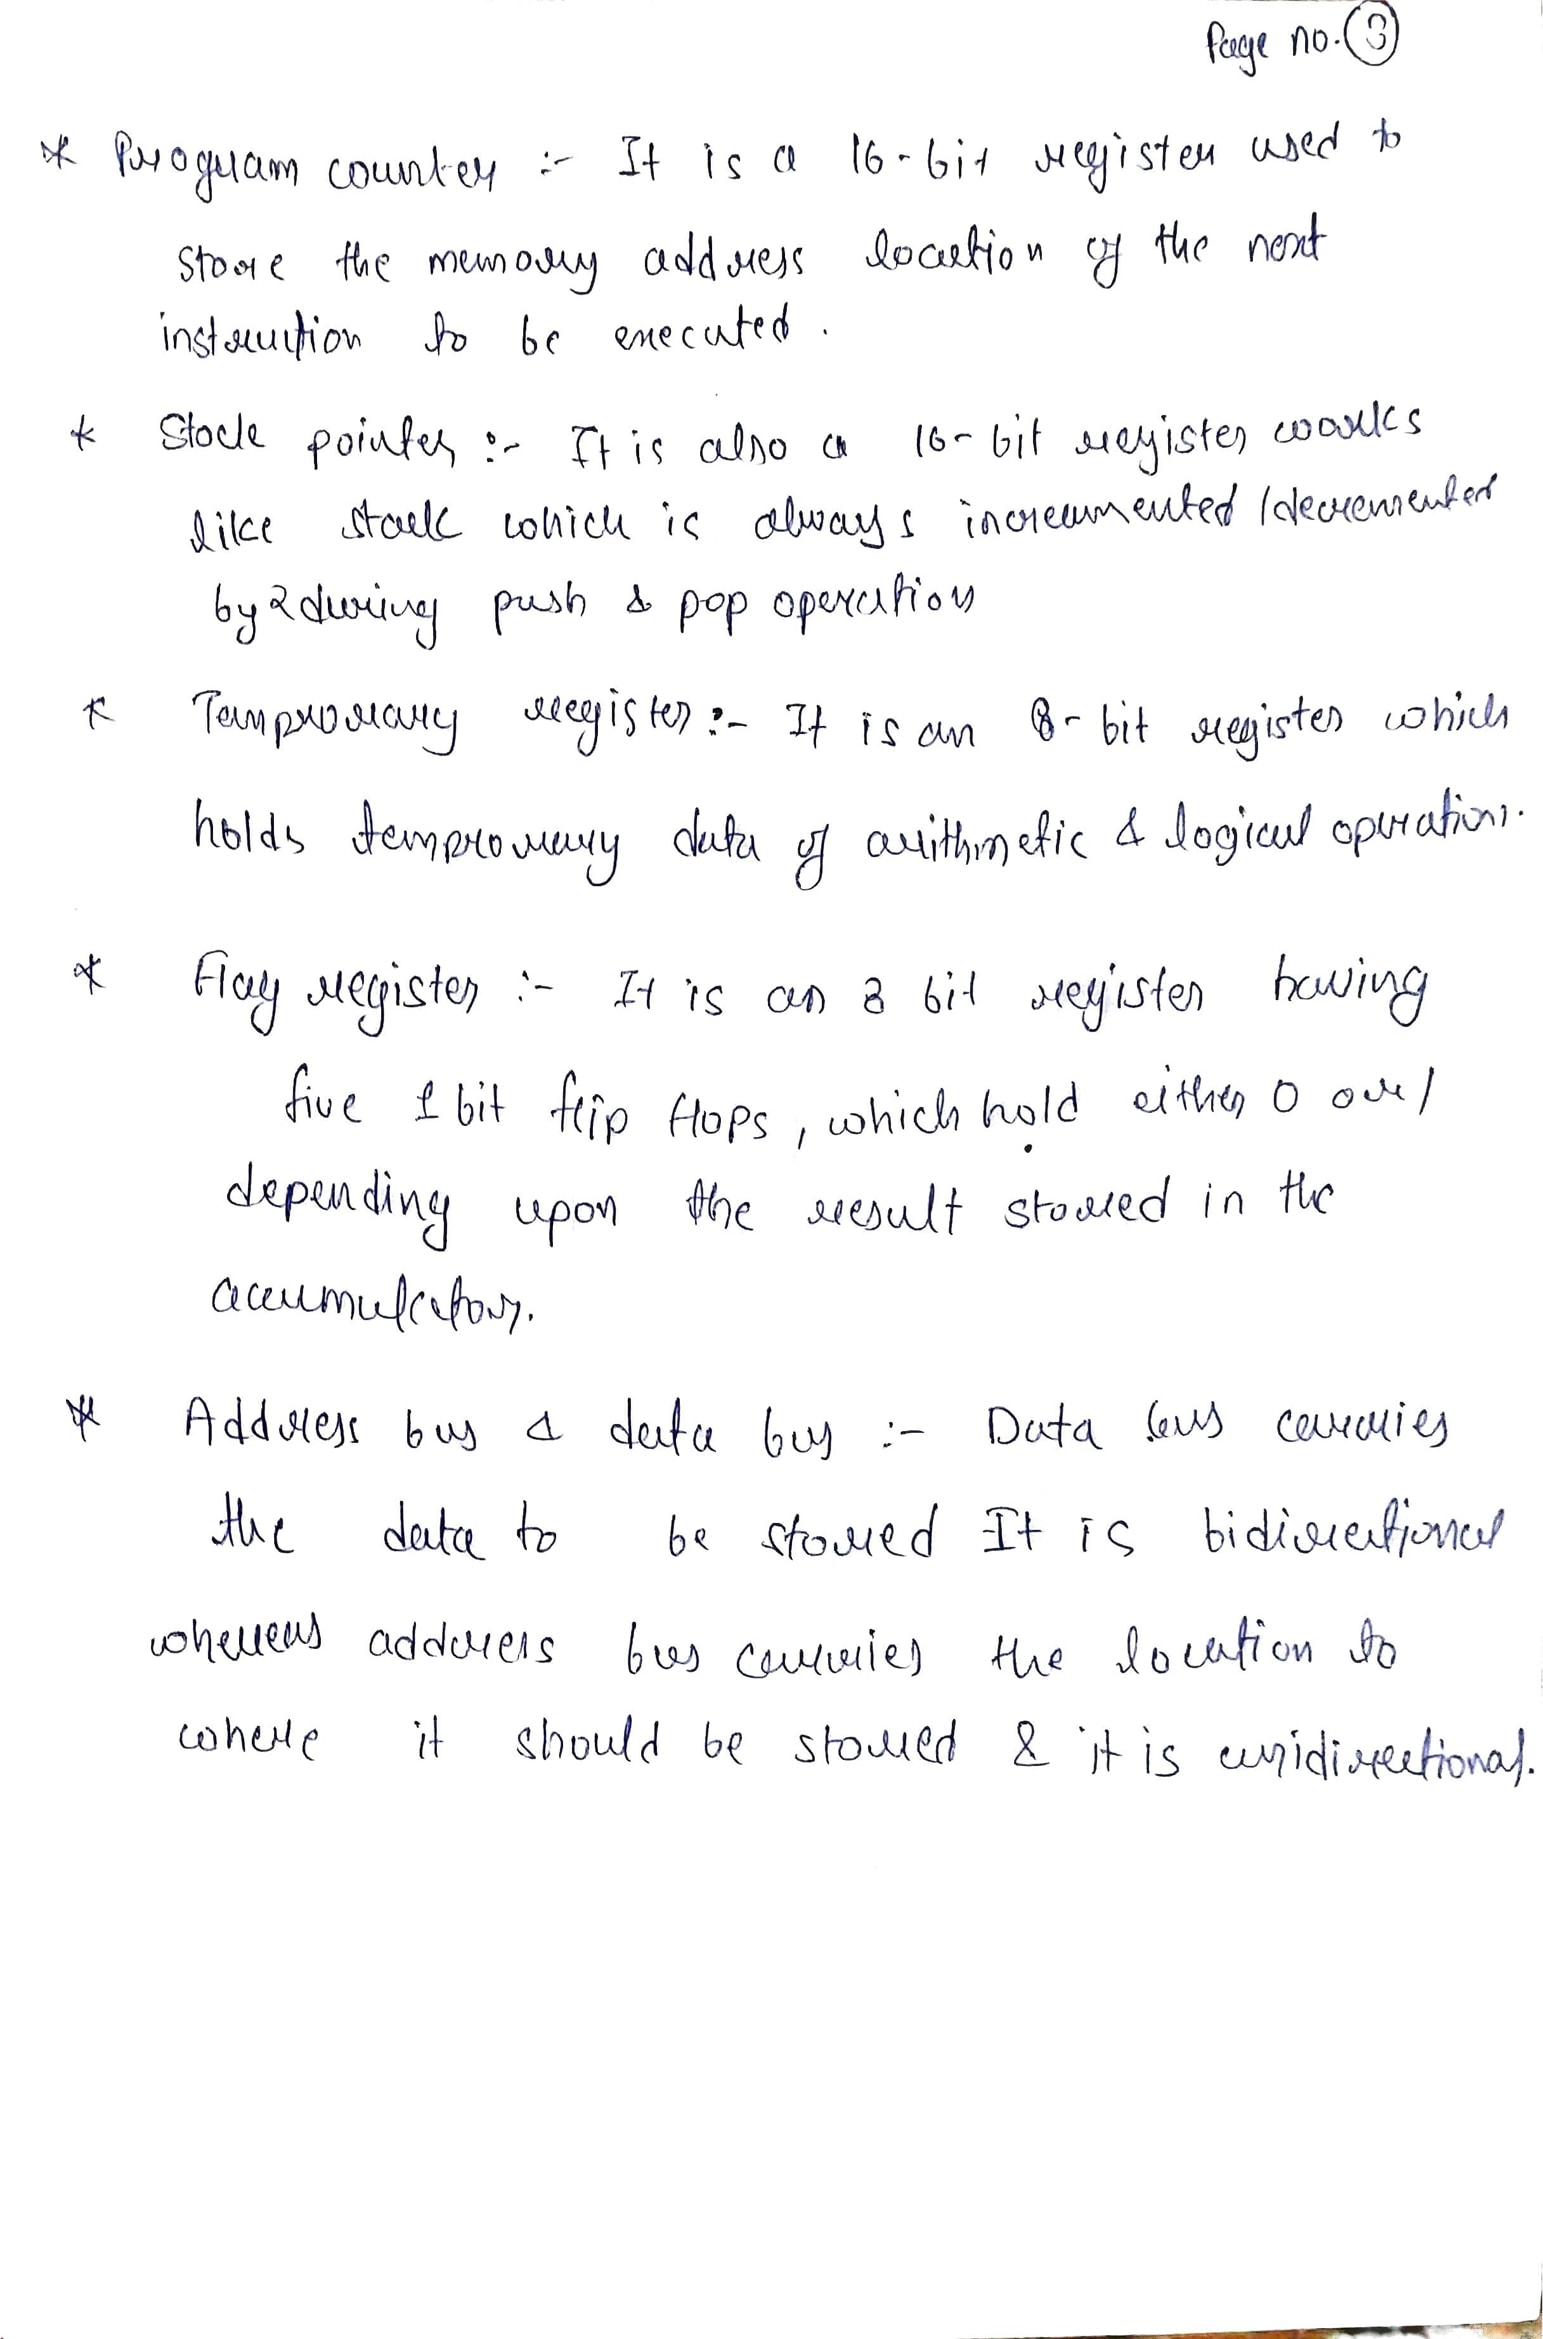 Page no. 3
* Program counter :- It is a 16-bit register used to
store the memory address location of the next
instruction to be executed.
* Stack pointer :- It is also a 16-bit register works
like stack which is always increamented / decremented
by 2 during push & pop operation
* Temprorary register :- It is an 8-bit register which
holds temprorary data of arithmetic & logical operations.
* Flag register :- It is an 8 bit register having
five 1 bit flip flops, which hold either 0 or 1
depending upon the result stored in the
accumulator.
* Address bus & data bus :- Data bus carries
the data to be stored It is bidirectional
whereas address bus carries the location to
where it should be stored & it is unidirectional.